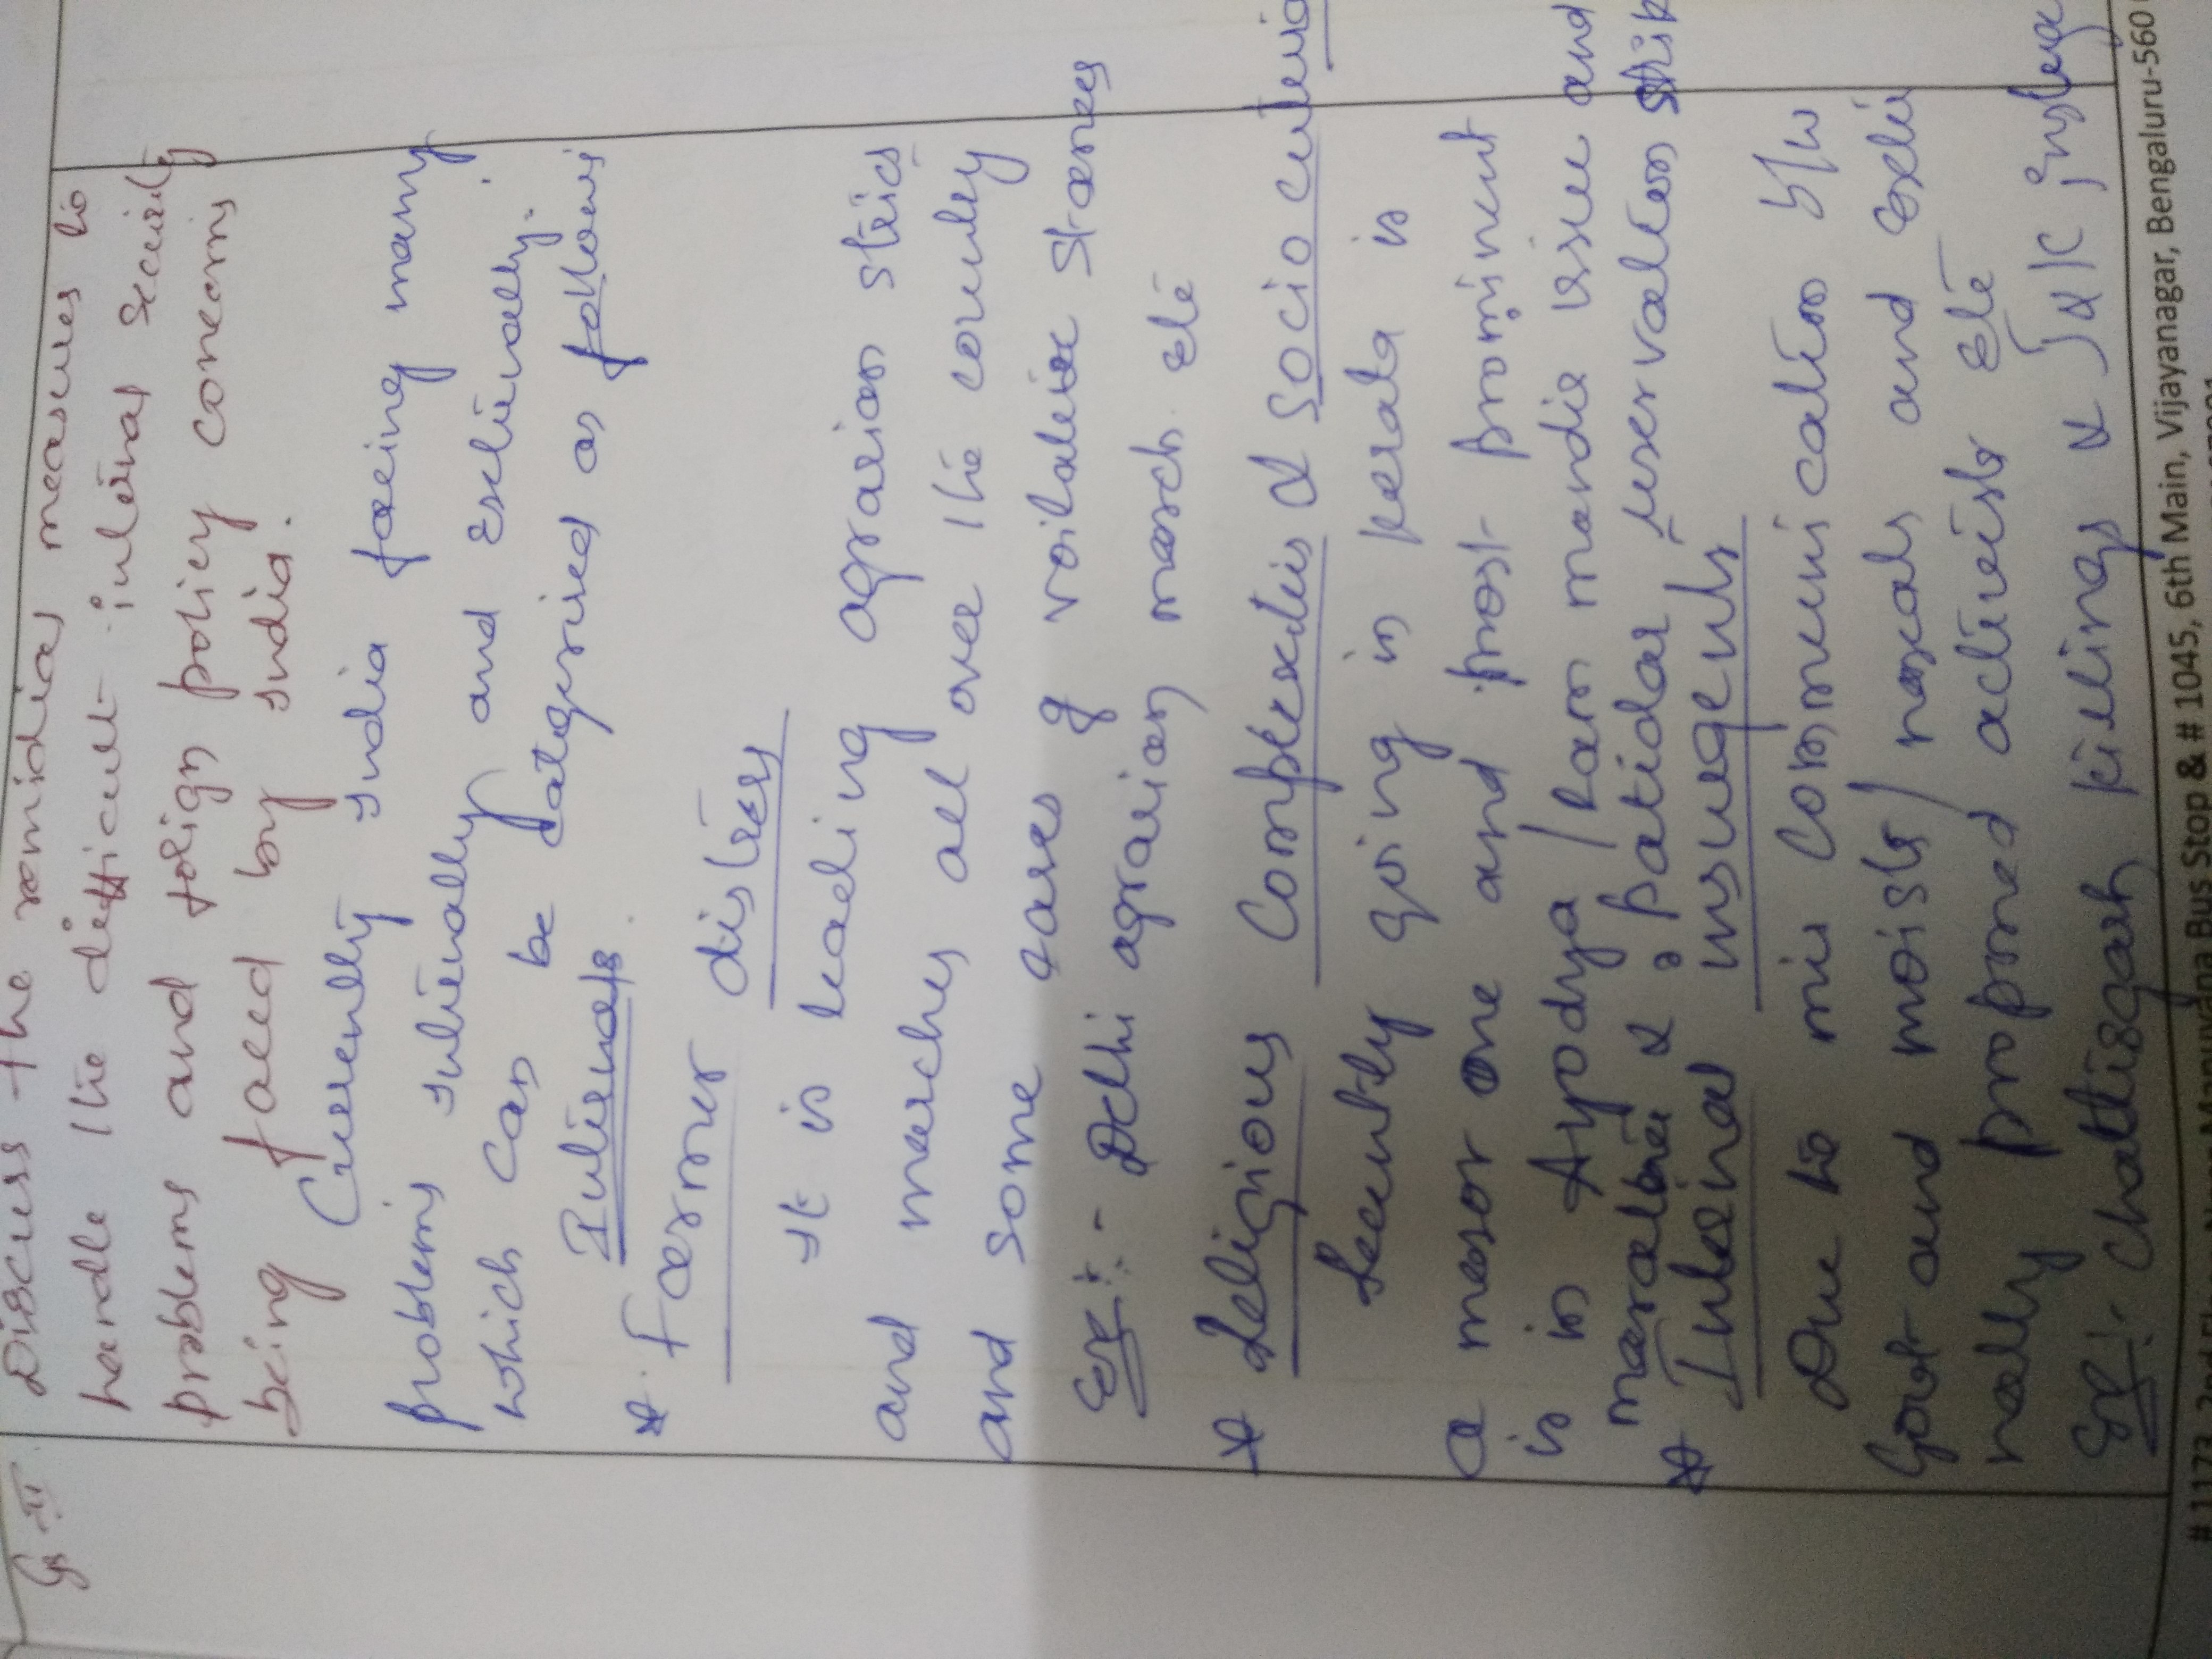 GS-II
Discuss the remidial measures to
handle the difficult internal security
problems and folign policy concerns
being faced by India.
Currently India facing many
problems internally and externally.
which can be categorised as follows
Internals.
* Farmer distress
It is leading agrarian strics
and marchs all over the country
and some cases of voilative stances
Ex:- Delhi agrarian march etc
* Religious Complexties & socio cultural
Recently going in kerala is
a mesor one and most prominent
is in Ayodya / Ram mandir issue and
maratha & patidar reservation
* Internal insurgents
Due to mis communication b/w
Govt and moists / naxals and
nally proponed activists etc
Ex:- Chattisgarh killings & J&K
# 1173, 2nd Bus Stop & # 1045, 6th Main, Vijayanagar, Bengaluru-560